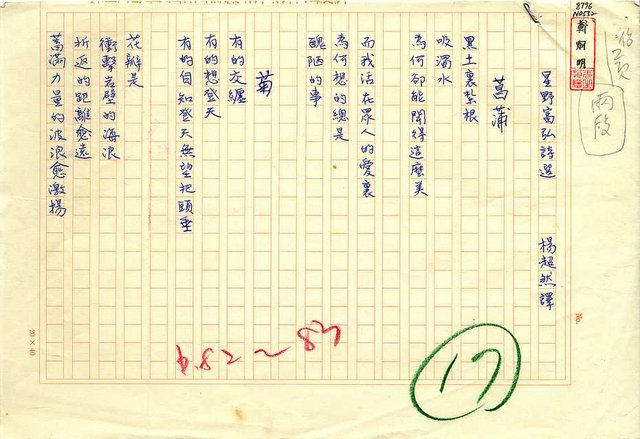 8776
N0552
鄭烱明
兩段
星野富弘詩選 楊超然譯
菖蒲
黑土裏紮根
吸濁水
為何卻能開得這麼美
而我活在眾人的愛裏
為何想的總是
醜陋的事
菊
有的交纏
有的想登天
有的自知登天無望把頭垂
花瓣是
衝擊岩壁的海浪
折返的距離愈遠
蓄滿力量的波浪愈激揚
No.
20×40
p.82~83
17